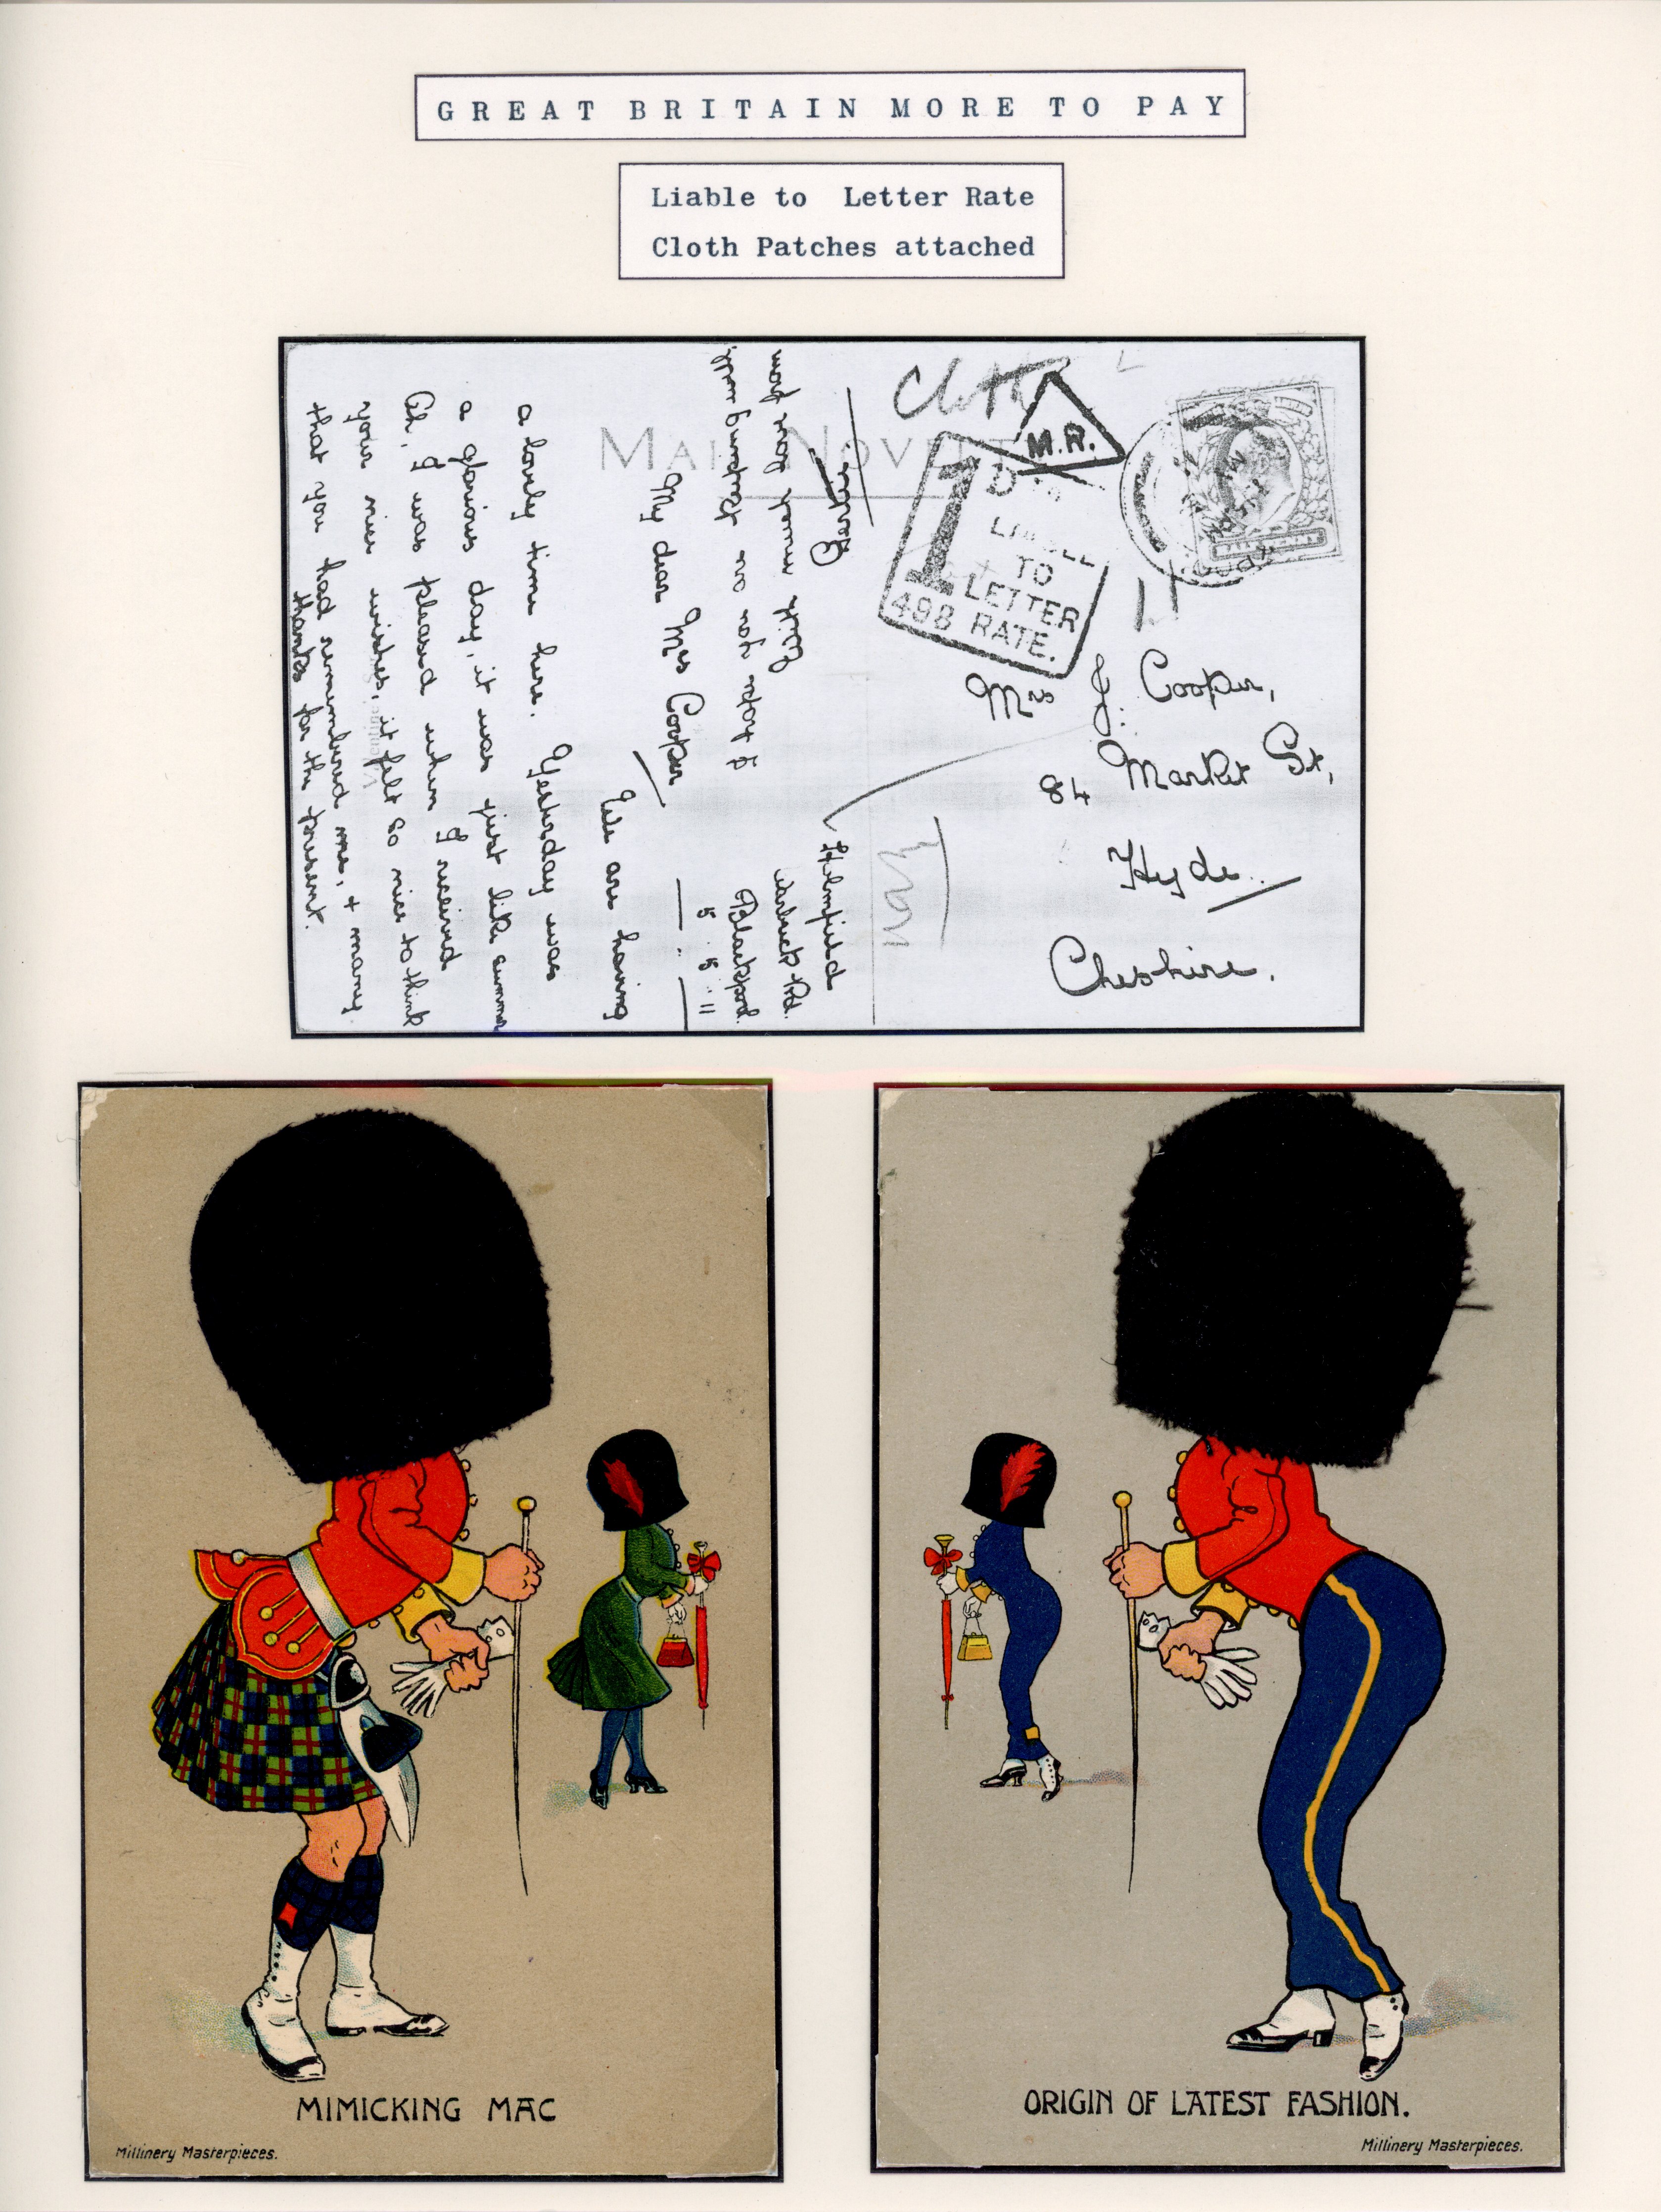 GREAT BRITAIN MORE TO PAY
Liable to Letter Rate
Cloth Patches attached
Cloth
M.R.
1D
LIABLE
TO
LETTER
498 RATE.
Mrs J. Cooper,
84 Market St,
Hyde.
Cheshire.
Helmfield
Warbreck Rd.
Blackpool.
5.5.11
My dear Mrs Cooper
We are having
a lovely time here. Yesterday was
a glorious day, it was just like summer
Oh, I was pleased when I received
your nice wishes, it felt so nice to think
that you had remembered me, + many
thanks for the present.
I hope you are keeping well.
With much love from
MIMICKING MAC
Millinery Masterpieces.
ORIGIN OF LATEST FASHION.
Millinery Masterpieces.